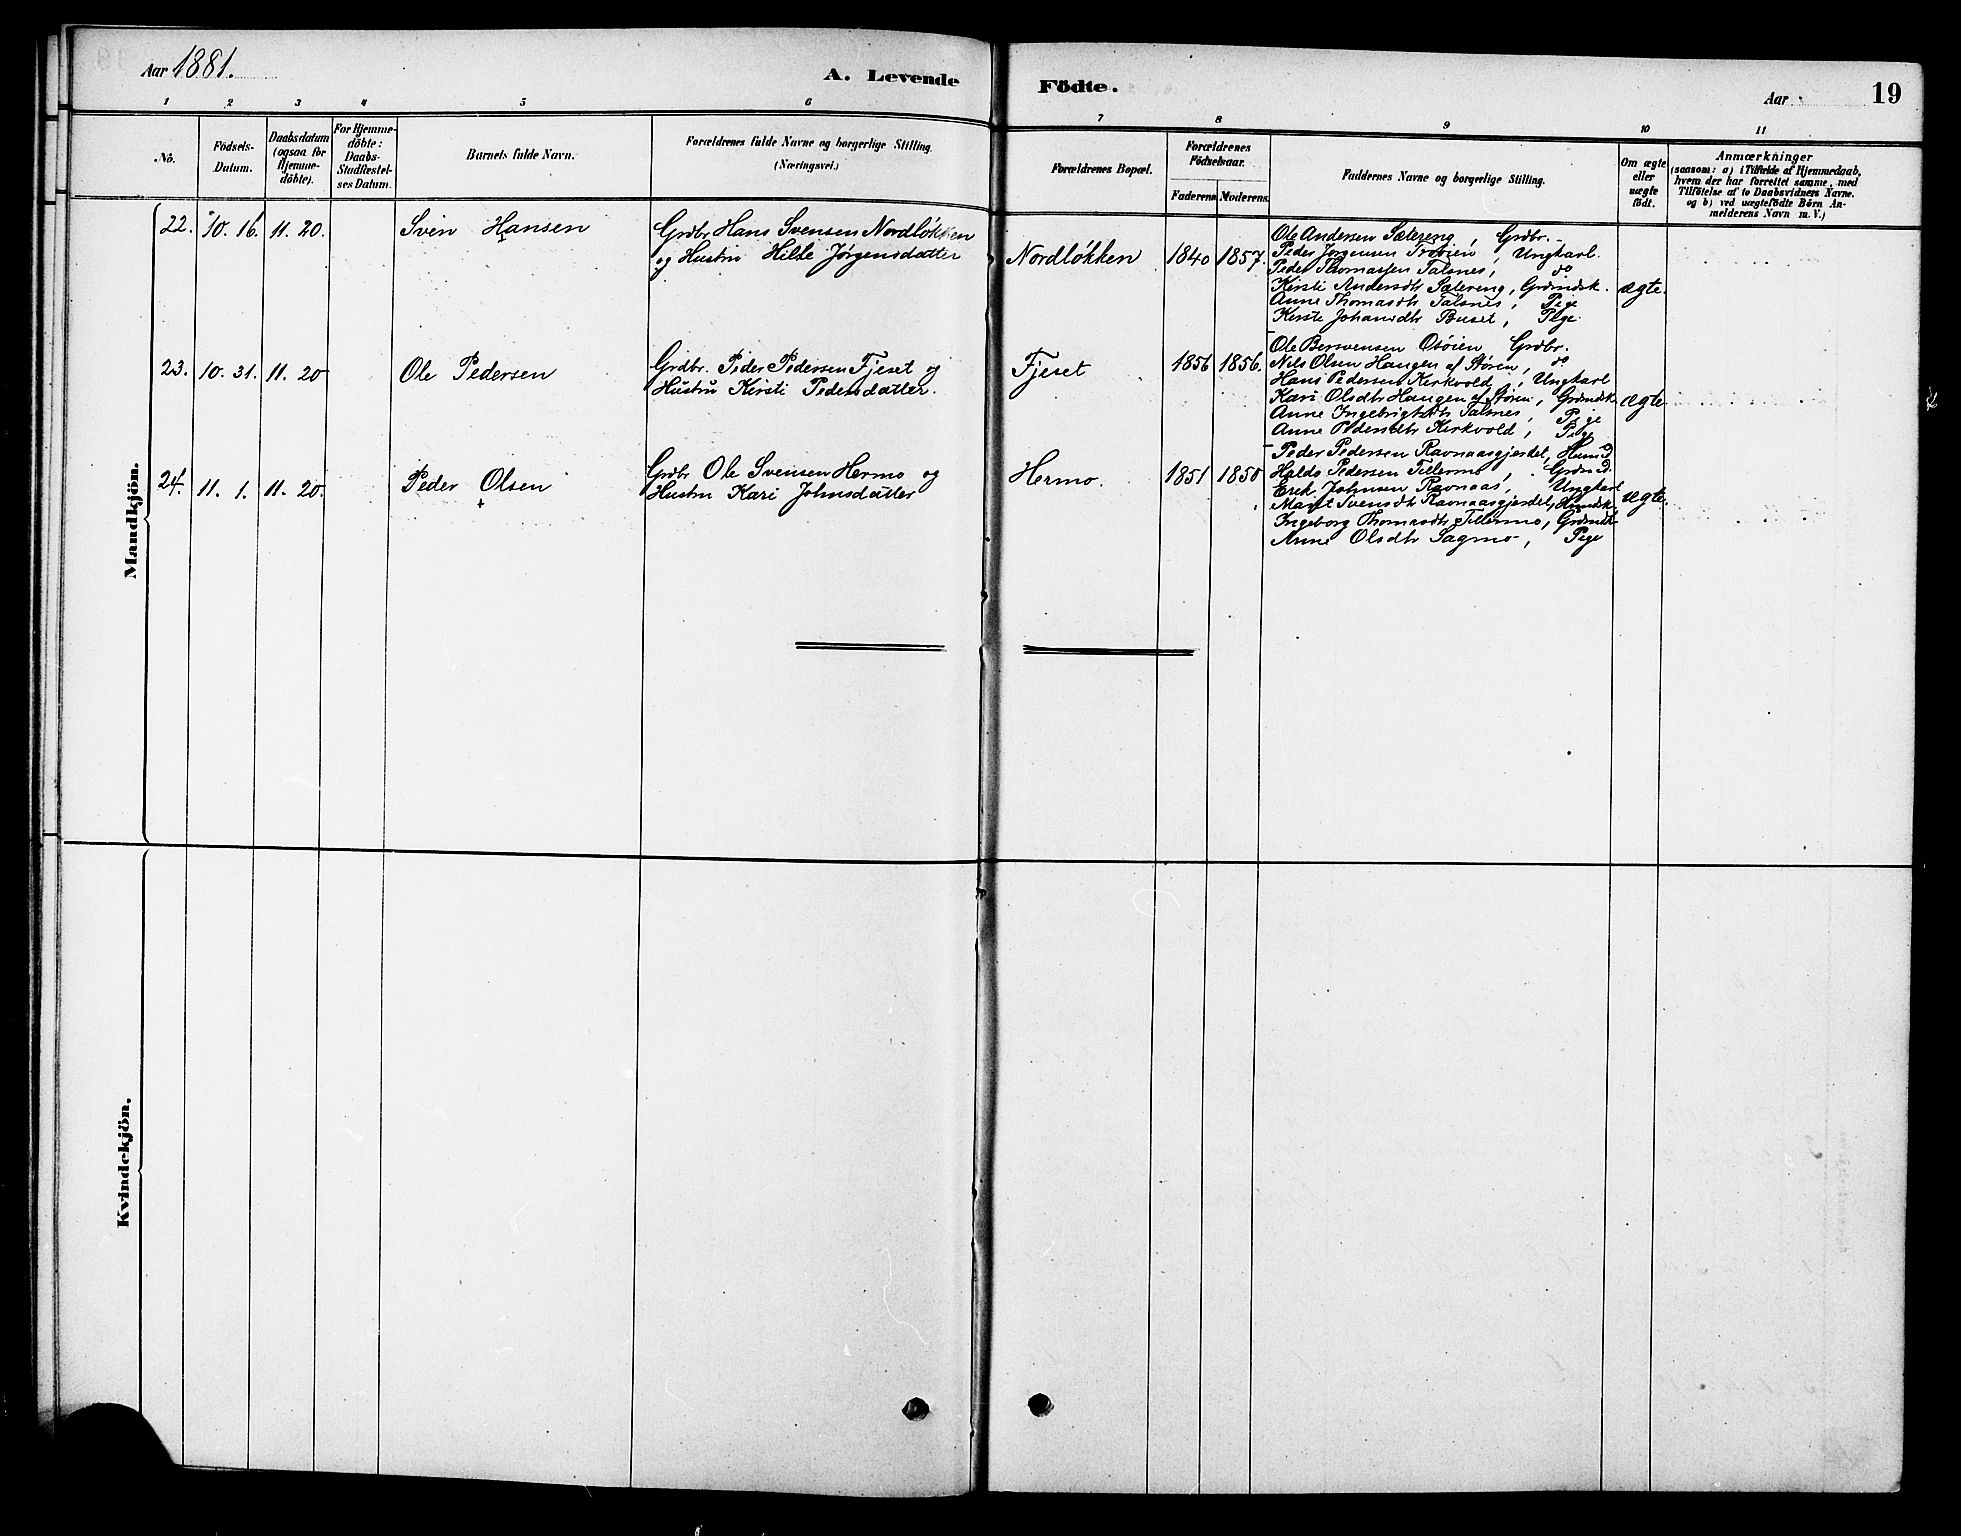 Aar 1881.
A. Levende
Födte.
Aar
19
1 2 3 4 5 6
7 8 9 10 11
No.
Födsels-
Datum.
Daabsdatum
(ogsaa for
Hjemme-
döbte).
For Hjemme-
döbte:
Daabs-
Stadfæstel-
ses Datum.
Barnets fulde Navn.
Forældrenes fulde Navne og borgerlige Stilling.
(Næringsvei.)
Forældrenes Bopæl.
Forældrenes
Födselsaar.
Faderens Moderens.
Faddernes Navne og borgerlige Stilling.
Om ægte
eller
uægte
födt.
Anmærkninger
(saasom: a) i Tilfælde af Hjemmedaab,
hvem der har forrettet samme, med
Tilföielse af to Daabsvidners Navne.
og b) ved uægtefödte Börn An-
melderens Navn m. V.)
Mandkjön.
22. 10. 16. 11. 20. Sven Hansen
Grdbr Hans Svensen Nordløkken
og Hustru Hilte Jørgensdatter
Nordløkken 1840 1857.
Ole Andersen Sætereng, Grdbr.
Peder Jørgensen, Ungkarl.
Peder Thomassen Talsnes, do
Kirsti Andersdtr Sætereng, Grdmdsk.
Anne Thomasdtr Talsnes, Pige
Kirste Johansdtr Buset, Pige
ægte.
23. 10. 31. 11. 20 Ole Pedersen
Grdbr. Peder Pedersen Fjeset og
Hustru Kirsti Pedersdatter.
Fjeset 1856 1856.
Ole Bersvensen Osøien Grdbr.
Nils Olsen Haugen af Støren, do
Hans Pedersen Kirkvold, Ungkarl
Kari Olsdtr Haugen af Støren, Grdmdsk
Anne Ingebrigtsdtr Talsnes, Pige
Anne Pedersdtr Kirkvold, Pige
ægte
24. 11. 1. 11. 20. Peder Olsen
Grdbr Ole Svensen Hermo og
Hustru Kari Johnsdatter
Hermo. 1851 1850
Peder Pedersen Ravnaasgjerdet, Husmd
Haldo Pedersen Tillermo, Grdmd.
Erik Johnsen Ravnaas, Ungkarl
Marit Svensdtr Ravnaasgjerdet, Husmdsk.
Ingeborg Thomasdtr Tillermo, Grdmdk
Anne Olsdtr Sagmo, Pige
ægte.
Kvindekjön.